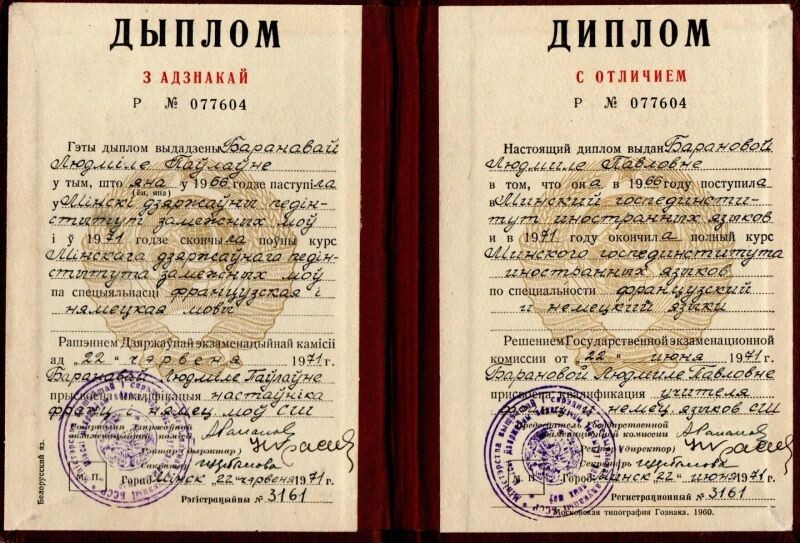 ДЫПЛОМ
З АДЗНАКАЙ
Р № 077604
Гэты дыплом выдадзены Баранавай
Людміле Паўлаўне
у тым, што яна у 1966 годзе паступіла
(ён, яна)
у Мінскі дзяржаўны педін-
стытут замежных моў
і ў 1971 годзе скончыла поўны курс
Мінскага дзяржаўнага педін-
стытута замежных моў
па спецыяльнасці французская і
нямецкая мовы
Рашэннем Дзяржаўнай экзаменацыйнай камісіі
ад „22“ чэрвеня 1971 г.
Баранавай Людміле Паўлаўне
прысвоена кваліфікацыя настаўніка
франц. нямец. моў СШ
Старшыня Дзяржаўнай
экзаменацыйнай камісіі
Рэктар (дырэктар)
Сакратар
М. П.
Горад Мінск „22“ чэрвеня 1971 г.
Рэгістрацыйны № 3161
Белорусский яз.
ДИПЛОМ
С ОТЛИЧИЕМ
Р № 077604
Настоящий диплом выдан Барановой
Людмиле Павловне
в том, что она в 1966 году поступила
в Минский госпединсти-
тут иностранных языков
и в 1971 году окончила полный курс
Минского госпединститута
иностранных языков
по специальности французский
и немецкий языки
Решением Государственной экзаменационной
комиссии от „22“ июня 1971 г.
Барановой Людмиле Павловне
присвоена квалификация учителя
немец. языков СШ
Председатель Государственной
экзаменационной комиссии
Ректор (директор)
Секретарь
М. П.
Город Минск „22“ июня 1971 г.
Регистрационный № 3161
Московская типография Гознака. 1960.